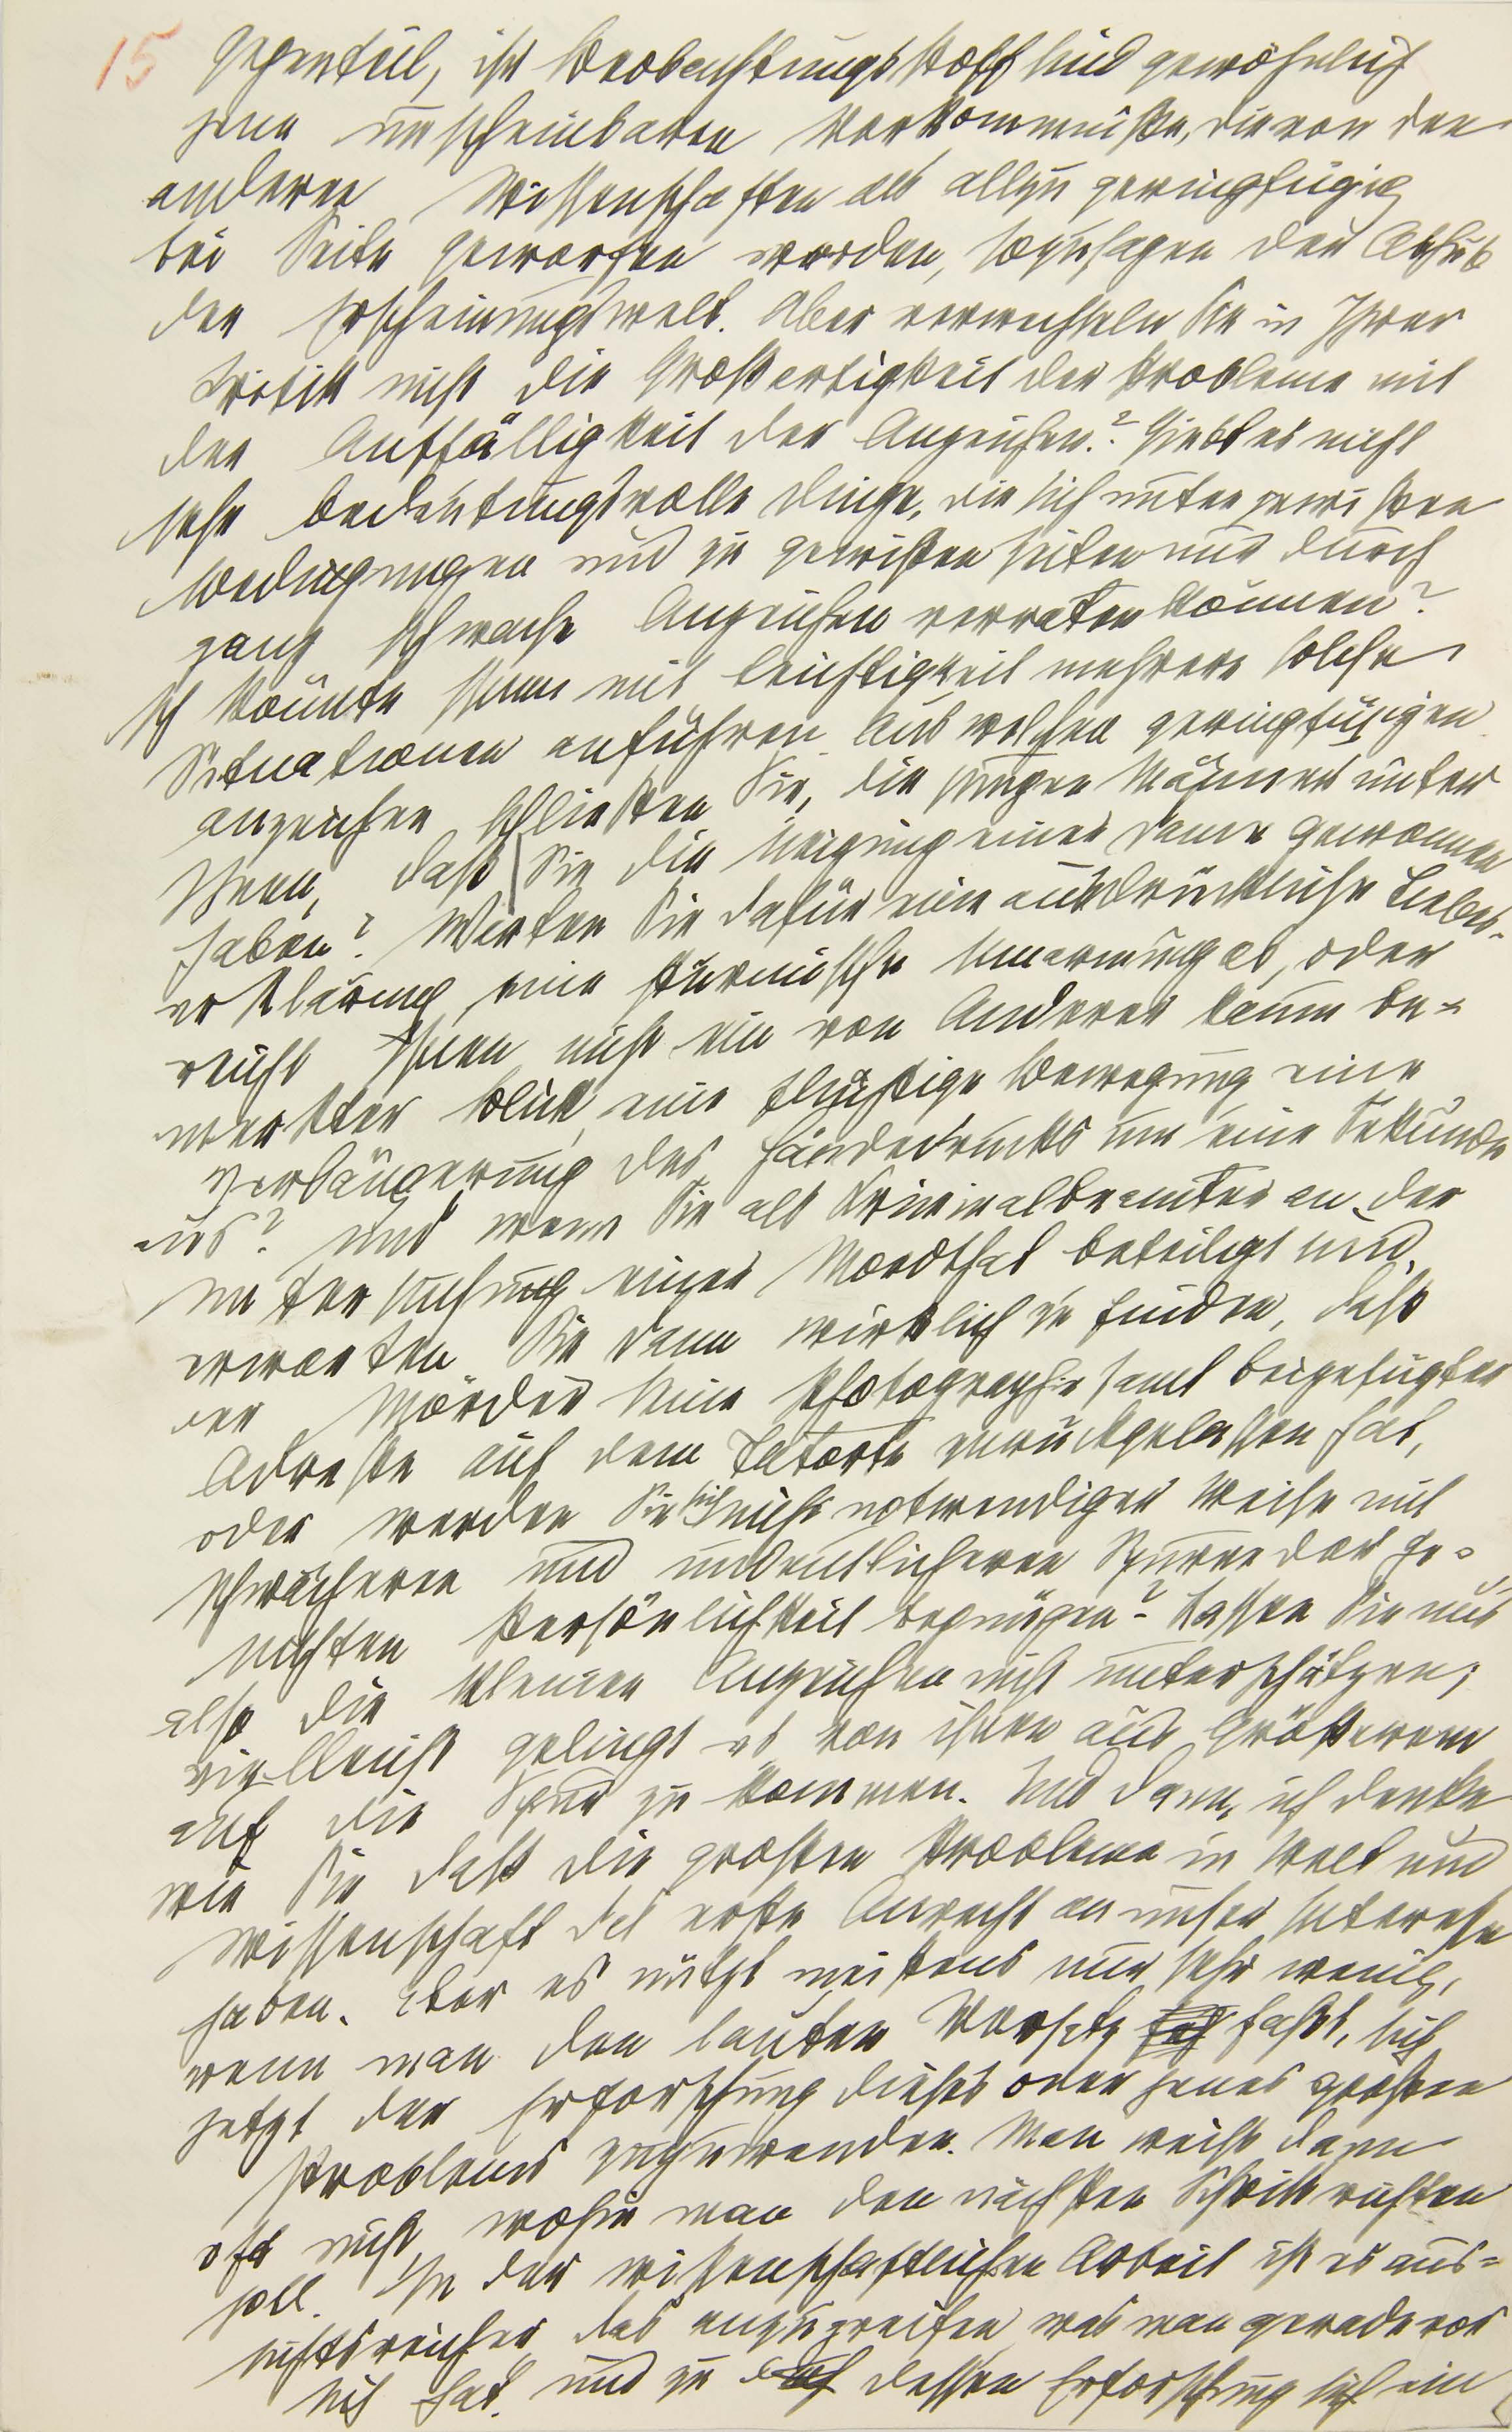 15 Gegenteil, ihr Beobachtungsstoff sind gewöhnlich
jene unscheinbaren Vorkommnisse, die von den
anderen Wissenschaften als allzu geringfügig
bei Seite geworfen werden, sozusagen der Abhub
der Erscheinungswelt. Aber verwechseln Sie in Ihrer
Kritik nicht die Großartigkeit der Probleme mit
der Auffälligkeit der Anzeichen? Giebt es nicht
sehr bedeutungsvolle Dinge, die sich unter gewissen
Bedingungen und zu gewissen Zeiten nur durch
ganz schwache Anzeichen verraten können?
Ich könnte Ihnen mit Leichtigkeit mehrere solche
Situationen anführen. Aus welchen geringfügigen
Anzeichen schließen Sie, die jungen Männer unter
Ihnen, daß Sie die Neigung einer Dame gewonnen
haben? Warten Sie dafür eine ausdrückliche Liebes-
erklärung, eine stürmische Umarmung ab, oder
reicht Ihnen nicht ein von Anderen kaum be-
merkter Blick, eine flüchtige Bewegung eine
Verlängerung des Händedrucks um eine Sekunde
aus? Und wenn Sie als Kriminalbeamter an der
Untersuchung einer Mordthat beteiligt sind,
erwarten Sie dann wirklich zu finden, daß
der Mörder seine Photographie samt beigefügter
Adresse auf dem Tatorte zurückgelassen hat,
oder werden Sie sich nicht notwendiger Weise mit
schwächeren und undeutlicheren Spuren der ge-
suchten Persönlichkeit begnügen? Lassen Sie uns
also die kleinen Anzeichen nicht unterschätzen;
vielleicht gelingt es von ihnen aus Größerem
auf die Spur zu kommen. Und dann, ich denke
wie Sie daß die großen Probleme in Welt und
Wissenschaft das erste Anrecht an unser Interesse
haben. Aber es nützt meistens nur sehr wenig,
wenn man den lauten Vorsatz faßt, sich
jetzt der Erforschung dieses oder jenes großen
Problems zuzuwenden. Man weiß dann
oft nicht, wohin man den nächsten Schritt richten
soll. In der wissenschaftlichen Arbeit ist es aus-
sichtsreicher, das anzugreifen was man gerade vor
sich hat und zu dessen Erforschung sich ein